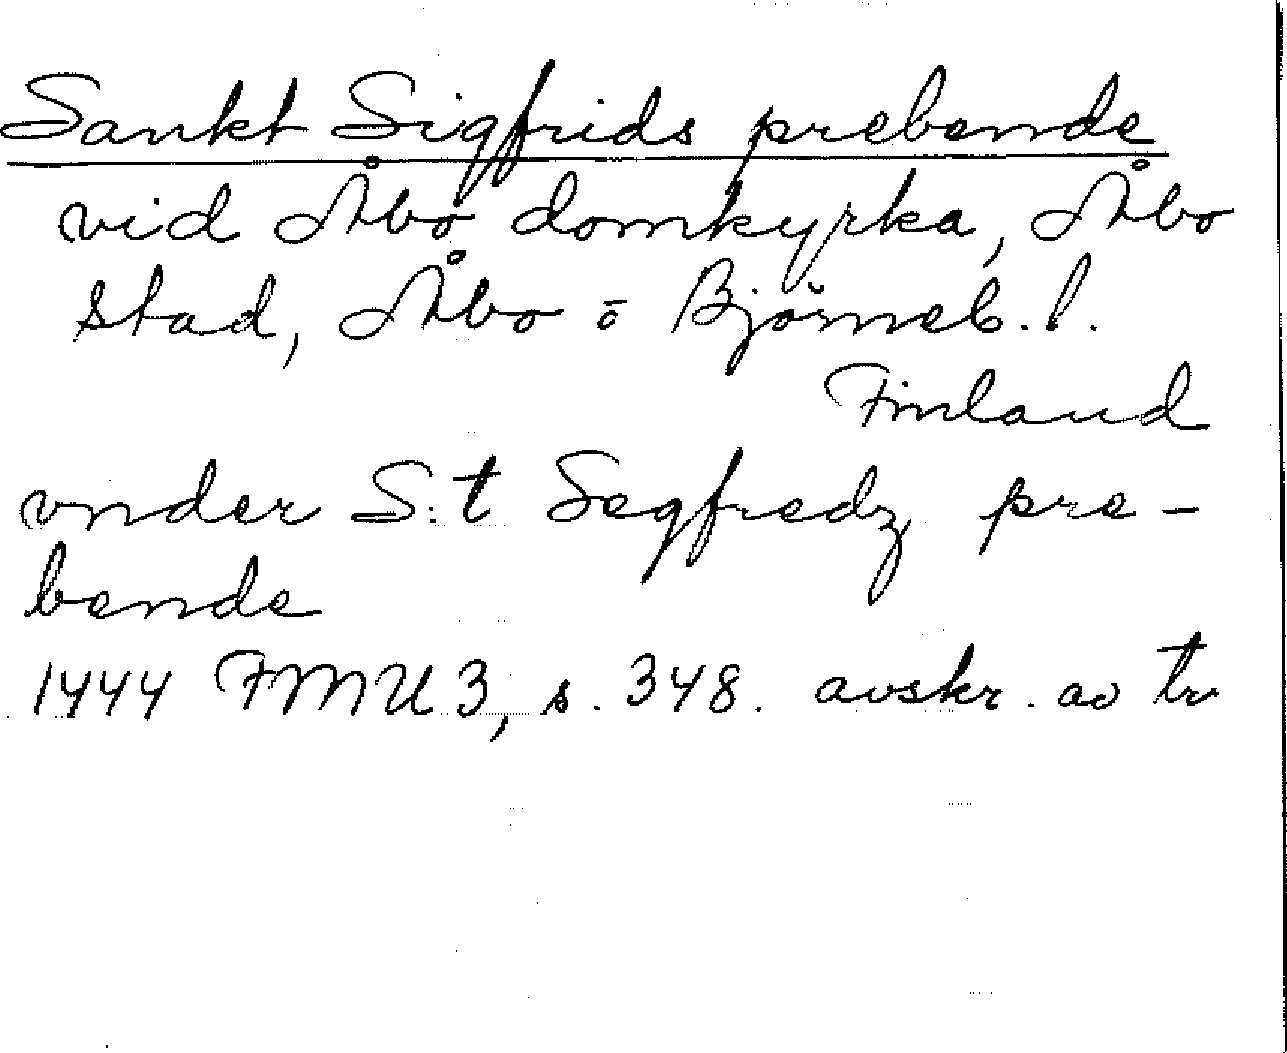 Sankt Sigfrids prebende
vid Åbo domkyrka, Åbo
stad, Åbo o Björneb. l.
Finland
vnder S:t Segfredz pre-
bende
1444 FMU 3, s. 348. avskr. av tr